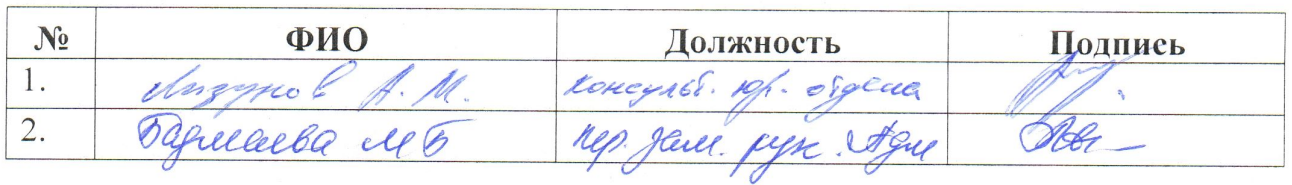 № ФИО Должность Подпись
1. Лизунов А. М. консульт. юр. отдела
2. Бадмаева М Б пер. зам. рук. Адм